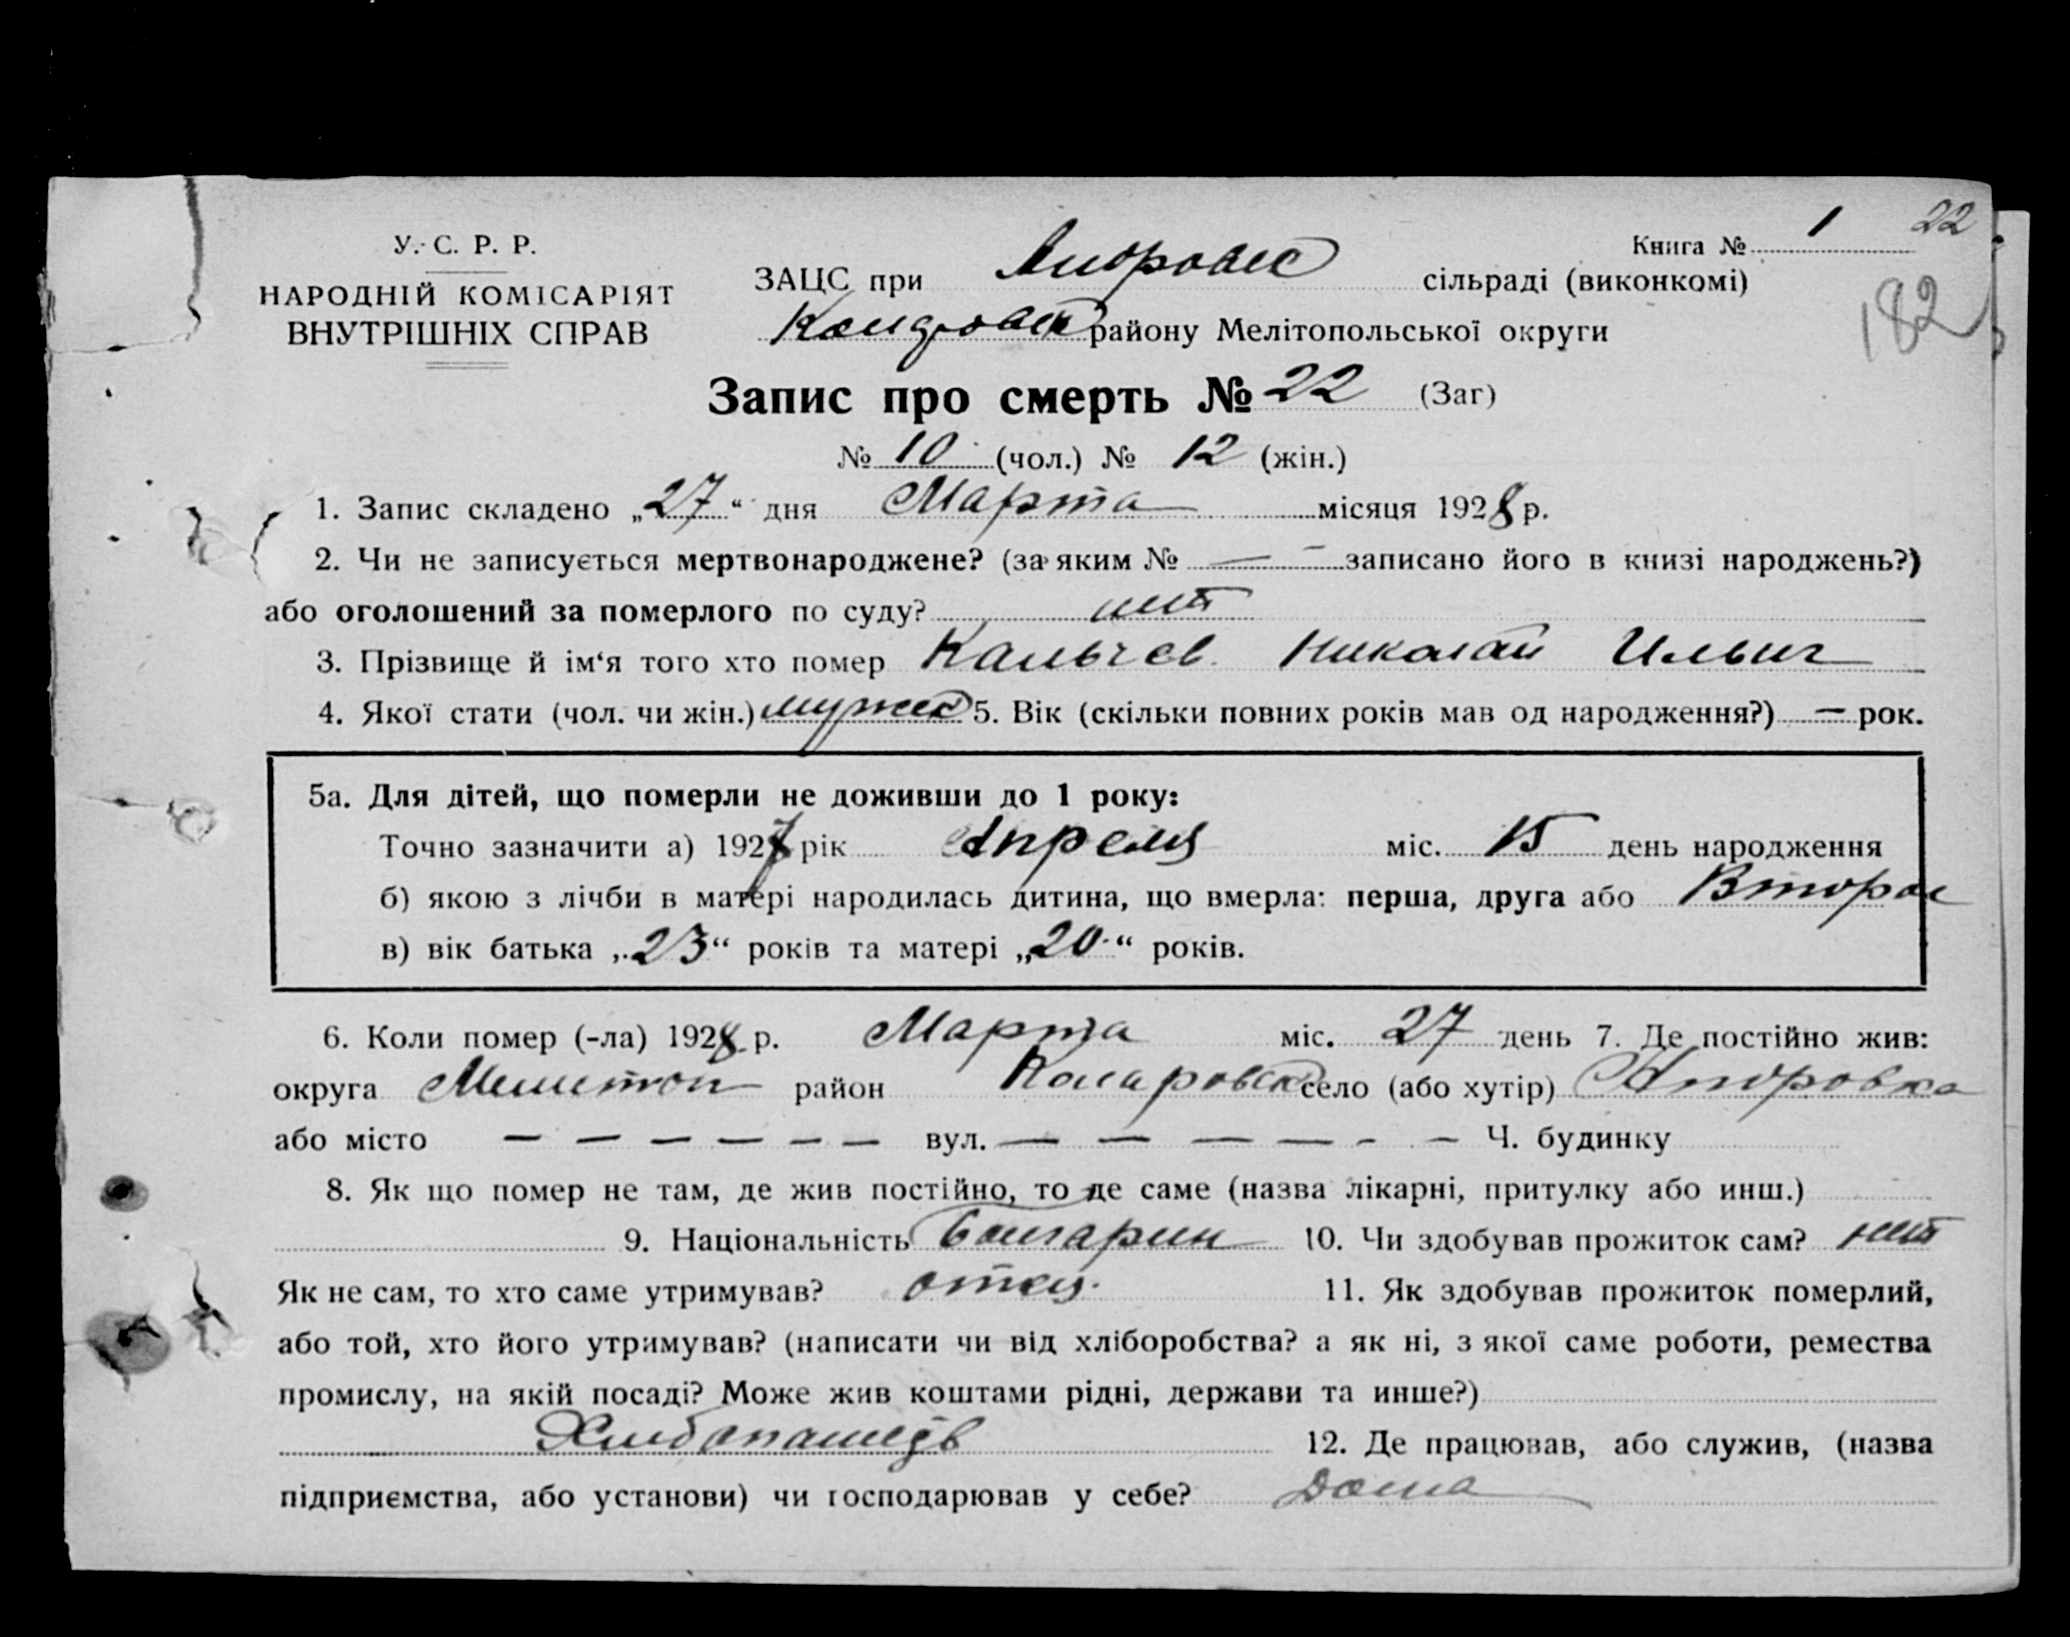 Книга № 1 22
У. С. Р. Р.
НАРОДНІЙ КОМІСАРІЯТ
ВНУТРІШНІХ СПРАВ
ЗАЦС при сільраді (виконкомі)
182
району Мелітопольської округи
Запис про смерть № 22 (Заг)
№ 10 (чол.) № 12 (жін.)
1. Запис складено „27“ дня Марта місяця 1928 р.
2. Чи не записується мертвонароджене? (за яким № — записано його в книзі народжень?)
або оголошений за померлого по суду? нет
3. Прізвище й ім‘я того хто помер Калычев Николай Ильич
4. Якої стати (чол. чи жін.) мужск 5. Вік (скільки повних років мав од народження?) — рок.
5а. Для дітей, що померли не доживши до 1 року:
Точно зазначити а) 1927 рік Апреля міс. 15 день народження
б) якою з лічби в матері народилась дитина, що вмерла: перша, друга або Вторая
в) вік батька „23“ років та матері „20“ років.
6. Коли помер (-ла) 1928 р. Марта міс. 27 день 7. Де постійно жив:
округа Мелитоп район Коларовск село (або хутір)
або місто — — — — — — вул. — — — — - — Ч. будинку
8. Як що помер не там, де жив постійно, то де саме (назва лікарні, притулку або инш.)
9. Національність Болгарин 10. Чи здобував прожиток сам? нет
Як не сам, то хто саме утримував? отец. 11. Як здобував прожиток померлий,
або той, хто його утримував? (написати чи від хліборобства? а як ні, з якої саме роботи, ремества
промислу, на якій посаді? Може жив коштами рідні, держави та инше?)
12. Де працював, або служив, (назва
підприємства, або установи) чи господарював у себе? Дома